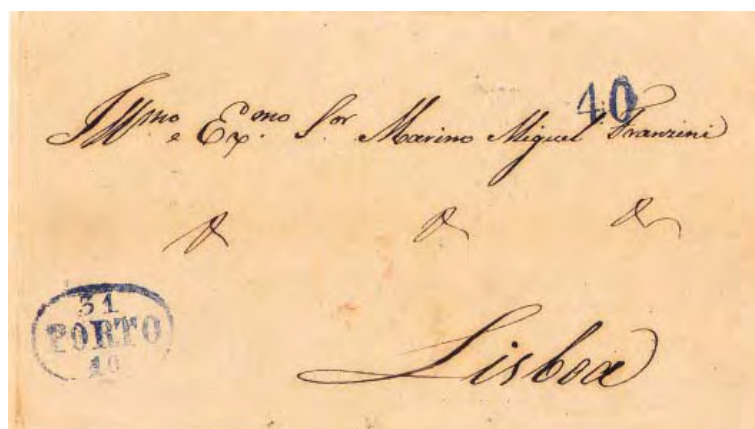 40
Ill.mo e Ex.mo S.or Marino Miguel Franzini
Lisboa
31
PORTO
10